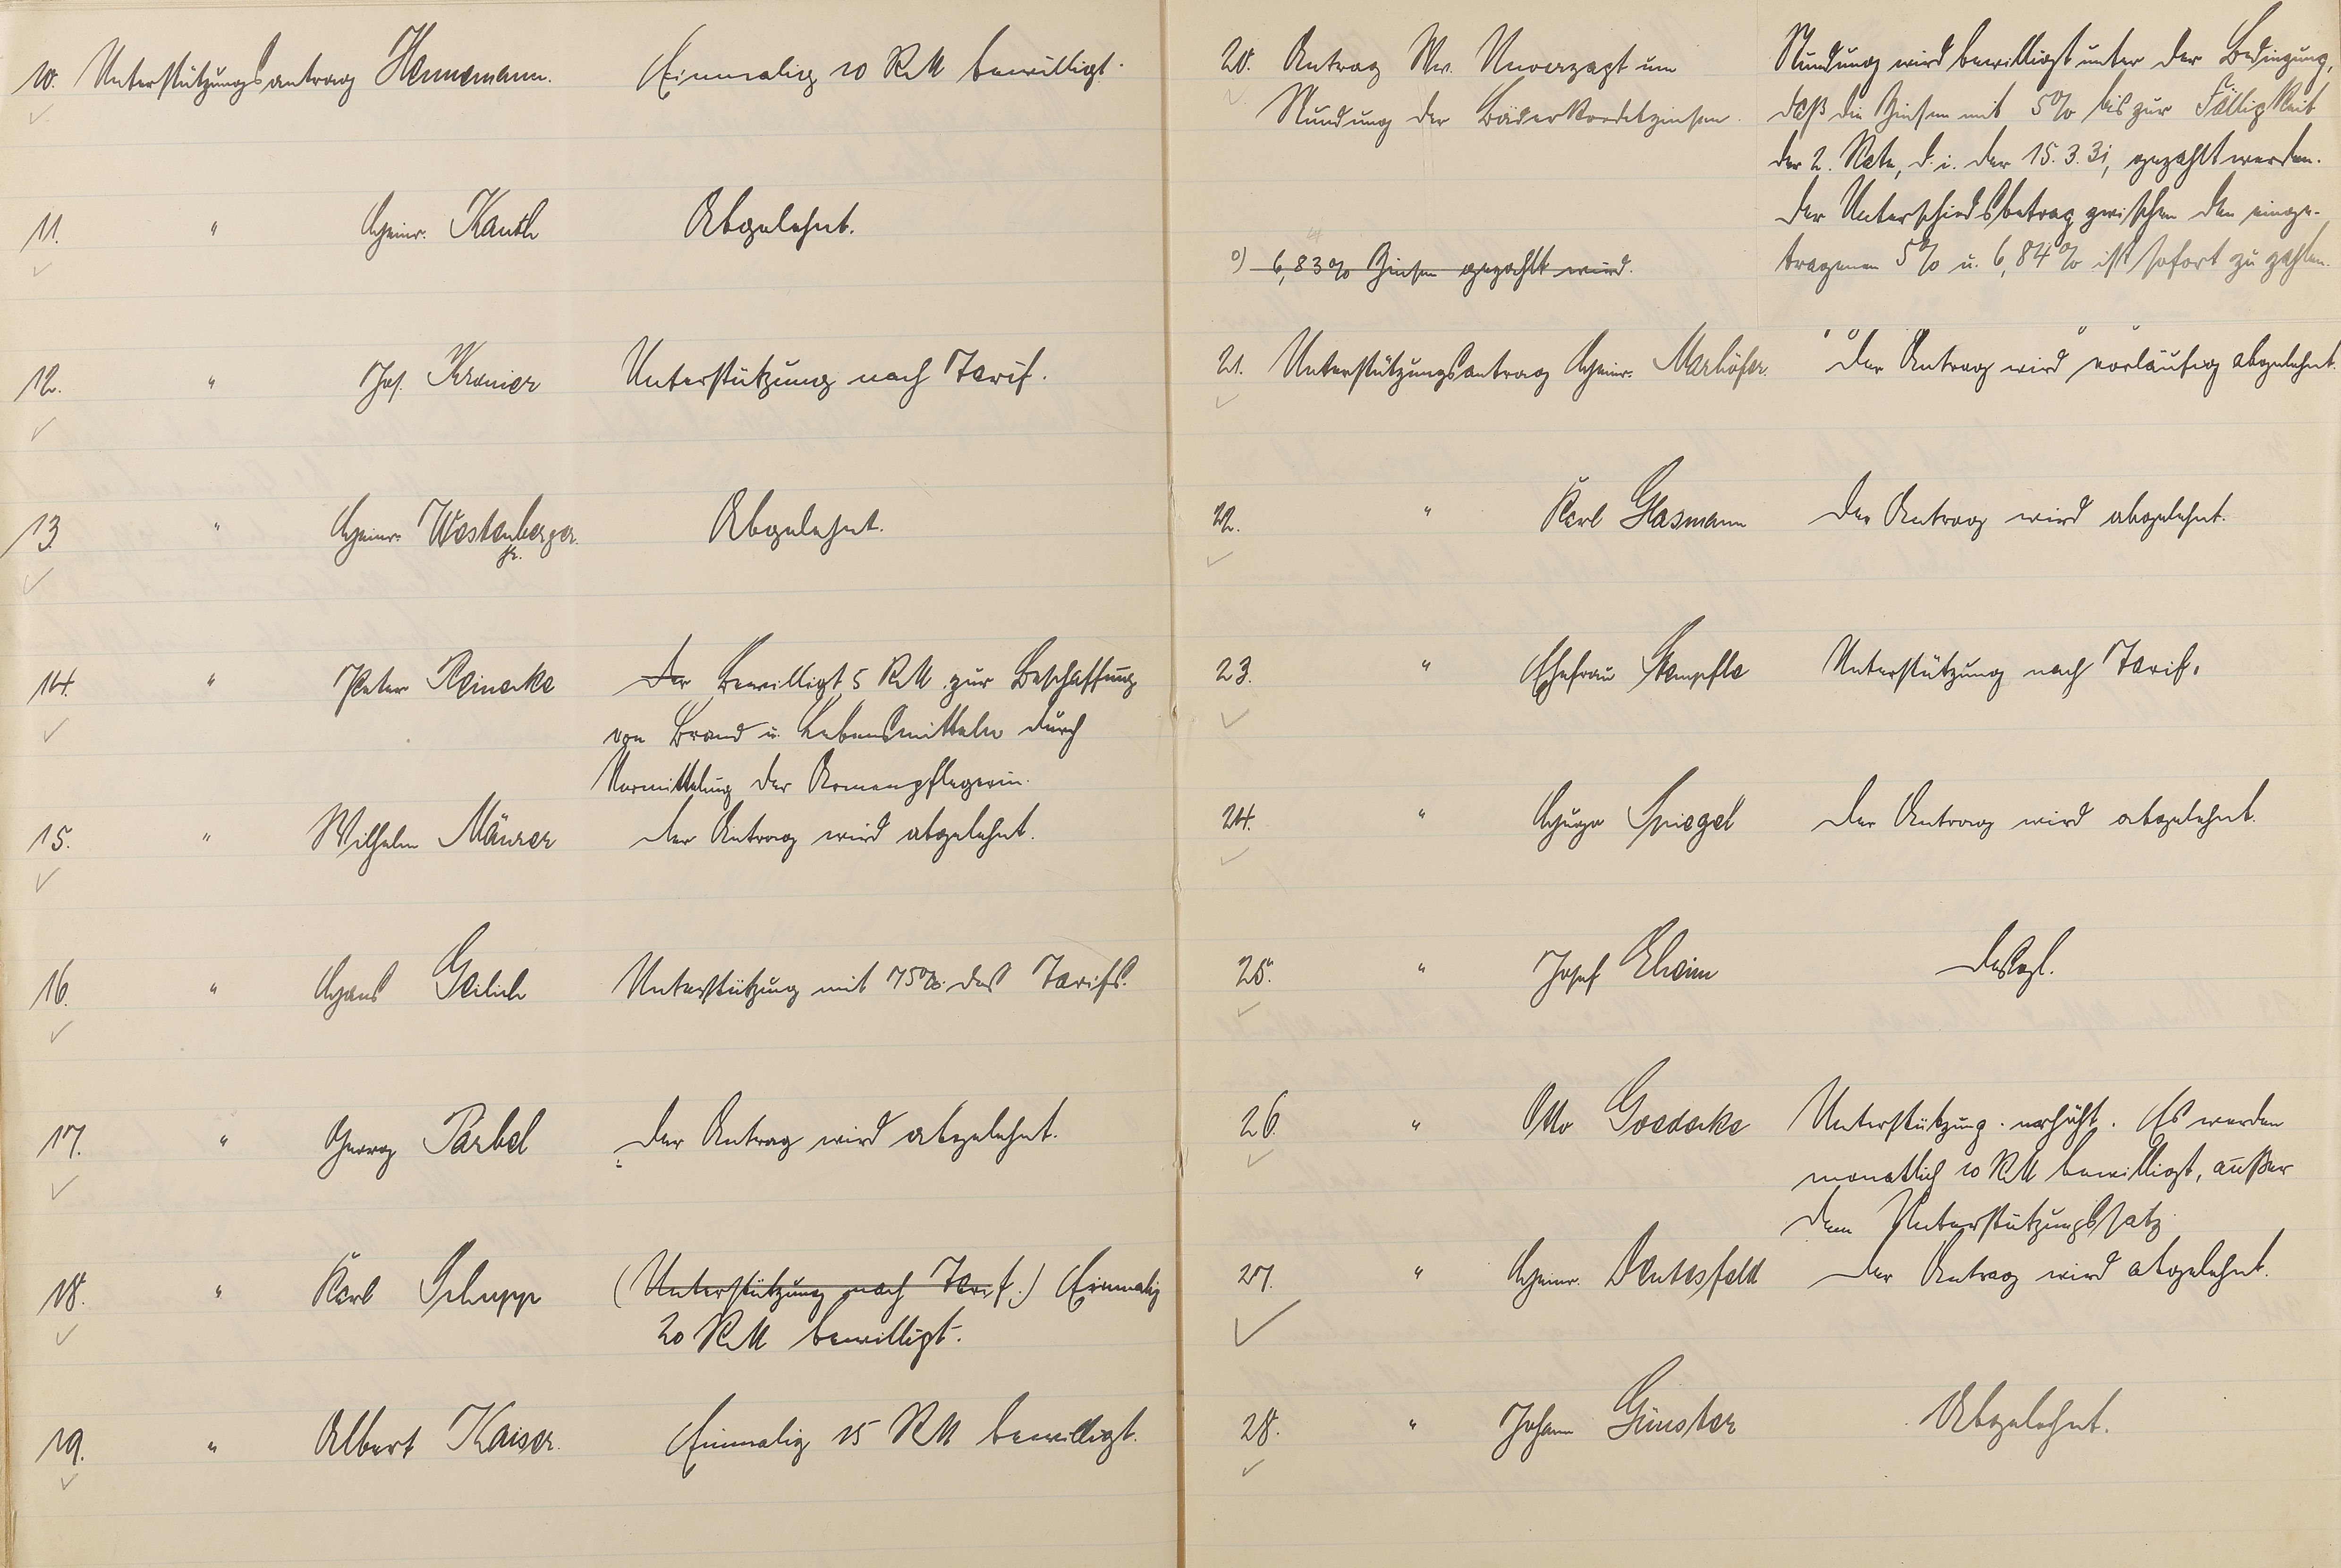 10. Unterstützungsantrag Hennemann. Einmalig 10 RM bewilligt.
11. " Heinr. Kauth Abgelehnt.
12. " Jos. Kremer Unterstützung nach Tarif.
13. " Heinr. Westenberger Abgelehnt.
jr.
14. " Peter Reineke Der Bewilligt 5 RM zur Beschaffung
von Brand u. Lebensmitteln durch
Vermittelung der Armenpflegerin.
15. " Wilhelm Mäurer Der Antrag wird abgelehnt.
16. " Hans Geilich Unterstützung mit 75% des Tarifs.
17. " Georg Pärbel Der Antrag wird abgelehnt.
18. " Karl Schupp (Unterstützung nach Tarif.) Einmalig
20 RM bewilligt.
19. " Albert Kaiser. Einmalig 15 RM bewilligt.
20. Antrag Ww. Unverzagt um
Stundung der Bäderkreditzinsen.
o) 6,83% Zinsen gezahlt wird.
Stundung wird bewilligt unter der Bedingung,
daß die Zinsen mit 5% bis zur Fälligkeit
der 2. Rate, d. i. der 15. 3. 31, gezahlt werden.
Der Unterschiedsbetrag zwischen den einge-
tragenen 5% u. 6,84% ist sofort zu zahlen.
21. Unterstützungsantrag Heinr. Marhöfer. Der Antrag wird vorläufig abgelehnt.
22. " Karl Glasmann Der Antrag wird abgelehnt.
23. " Ehefrau Stempfle Unterstützung nach Tarif.
24. " Hugo Spiegel Der Antrag wird abgelehnt.
25. " Josef Eheim Desgl.
26. " Otto Goedeke Unterstützung erhöht. Es werden
monatlich 10 RM bewilligt, außer
dem Unterstützungssatz
27. " Heinr. Dentesfeld Der Antrag wird abgelehnt.
28. " Johann Günster Abgelehnt.